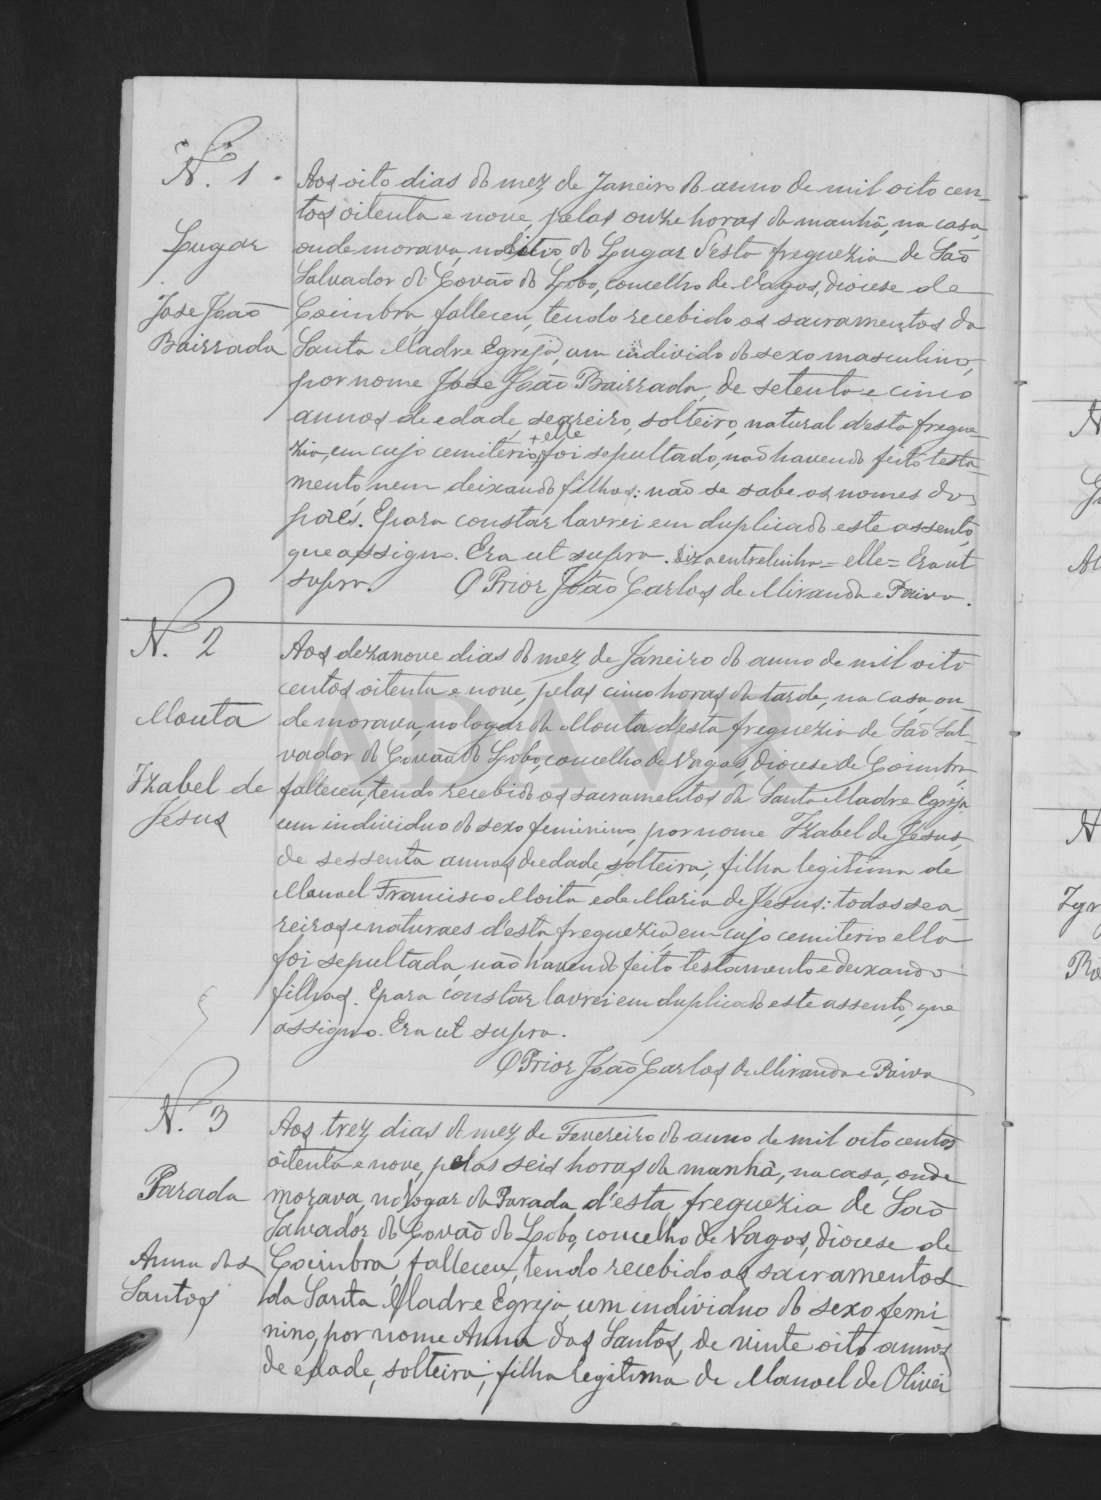 N. 1
Lugar
José João
Bairrada
Aos oito dias do mez de Janeiro do anno de mil oito cen-
tos oitenta e nove, pelas onze horas da manhã, na casa,
onde morava, no sitio do Lugar d'esta freguezia de São
Salvador do Covão do Lobo, concelho de Vagos, diocese de
Coimbra, falleceu, tendo recebido os sacramentos da
Santa Madre Egreja, um individo do sexo masculino,
por nome José João Bairrada, de setenta e cinco
annos de edade, seareiro, solteiro, natural d'esta fregue-
zia, em cujo cemiterio + elle foi sepultado, não havendo feito testa-
mento, nem deixando filhos: não se sabe os nomes dos
páes. E para constar lavrei em duplicado este assento,
que assigno. Era ut supra. Diz a entrelinha = elle = Era ut
supra. O Prior João Carlos de Miranda e Paiva.
N. 2
Mouta
Izabel de
Jesus
Aos dezanove dias do mez de Janeiro do anno de mil oito
centos oitenta e nove, pelas cinco horas da tarde, na casa, on-
de morava, no logar da Mouta d'esta freguezia de São Sal-
vador do Covão do Lobo, concelho de Vagos, diocese de Coimbra
falleceu, tendo recebido os sacramentos da Santa Madre Egreja
um individuo do sexo feminino, por nome Izabel de Jesus,
de sessenta annos de edade, solteira, filha legitima de
Manoel Francisco Moita e de Maria de Jesus: todos sea-
reiros e naturaes d'esta freguezia, em cujo cemiterio ella
foi sepultada, não havendo feito testamento e deixando
filhos. E para constar lavrei em duplicado este assento, que
assigno. Era ut supra.
O Prior João Carlos de Miranda e Paiva
N. 3
Parada
Anna dos
Santos
Aos trez dias do mez de Fevereiro do anno de mil oito centos
oitenta e nove, pelas seis horas da manhã, na casa, onde
morava, no logar da Parada, d'esta freguezia de São
Salvador do Covão do Lobo, concelho de Vagos, diocese de
Coimbra, falleceu, tendo recebido os sacramentos
da Santa Madre Egreja, um individuo do sexo femi-
nino, por nome Anna dos Santos, de vinte oito annos
de edade, solteira, filha legitima de Manoel de Olivei
ADAVR